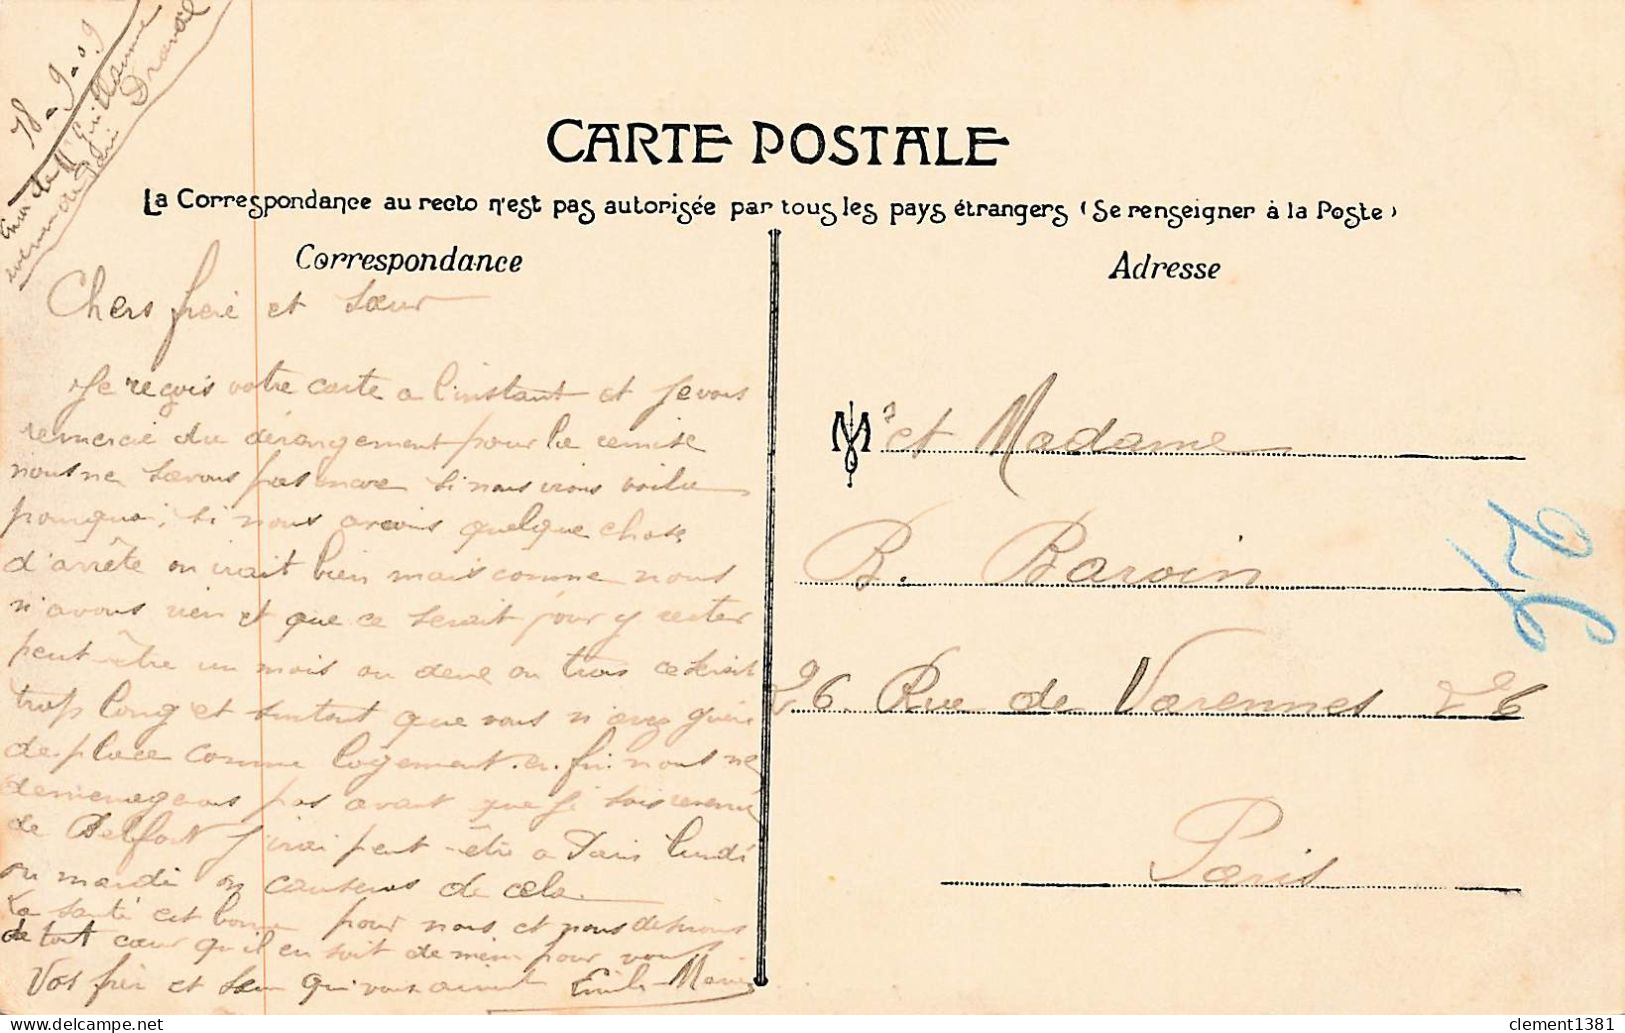 18-9-09
Guillaume
Draveil
CARTE POSTALE
La Correspondance au recto n'est pas autorisée par tous les pays étrangers (Se renseigner à la Poste)
Correspondance
Chers frère et sœur
Je reçois votre carte a l'instant et je vous
remercie du dérangement pour la remise
nous ne savons pas encore si nous irons voila
pourquoi, si nous avions quelque chose
d'arrête on irait bien mais comme nous
n'avons rien et que ce serait pour y rester
peut-être un mois ou deux ou trois ce serait
trop long et surtout que vous n'avez guère
de place comme logement. en fin nous ne
demenageons pas avant que je sois revenu
de Belfort j'irai peut-être a Paris lundi
ou mardi on causeras de cela.
La santé est bonne pour nous et nous desirons
de tout cœur qu'il en soit de même pour vous
Vos frère et sœur qui vous aiment Emile-Marie
Adresse
M. et Madame
B. Baroin
26. Rue de Varennes 26
Paris
clement1381